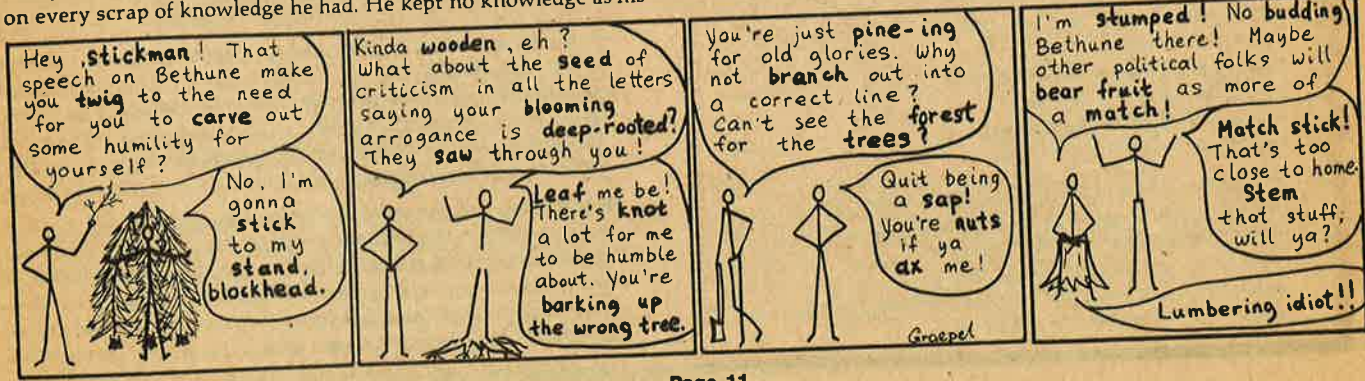 on every scrap of knowledge he had. He kept no knowledge as his
Hey, stickman! That
speech on Bethune make
you twig to the need
for you to carve out
some humility for
yourself?
No, I'm
gonna
stick
to my
stand,
blockhead.
Kinda wooden, eh?
What about the seed of
criticism in all the letters
saying your blooming
arrogance is deep-rooted?
They saw through you!
Leaf me be!
There's knot
a lot for me
to be humble
about. You're
barking up
the wrong tree.
You're just pine-ing
for old glories. Why
not branch out into
a correct line?
Can't see the forest
for the trees?
Quit being
a sap!
You're nuts
if ya
ax me!
Graepel
I'm stumped! No budding
Bethune there! Maybe
other political folks will
bear fruit as more of
a match!
Match stick!
That's too
close to home.
Stem
that stuff,
will ya?
Lumbering idiot!!
Page 11